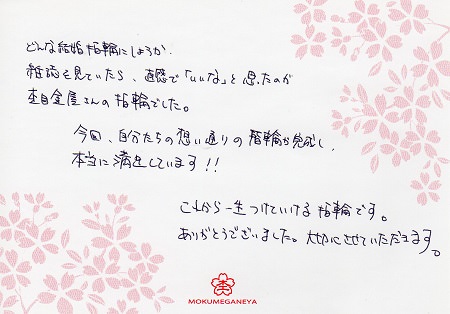 どんな結婚指輪にしようか、
雑誌を見ていたら、直感で「いいな」と思ったのが
杢目金屋さんの指輪でした。
今回、自分たちの想い通りの指輪が完成し、
本当に満足しています!!
これから一生つけていける指輪です。
ありがとうございました。大切にさせていただきます。
MOKUMEGANEYA